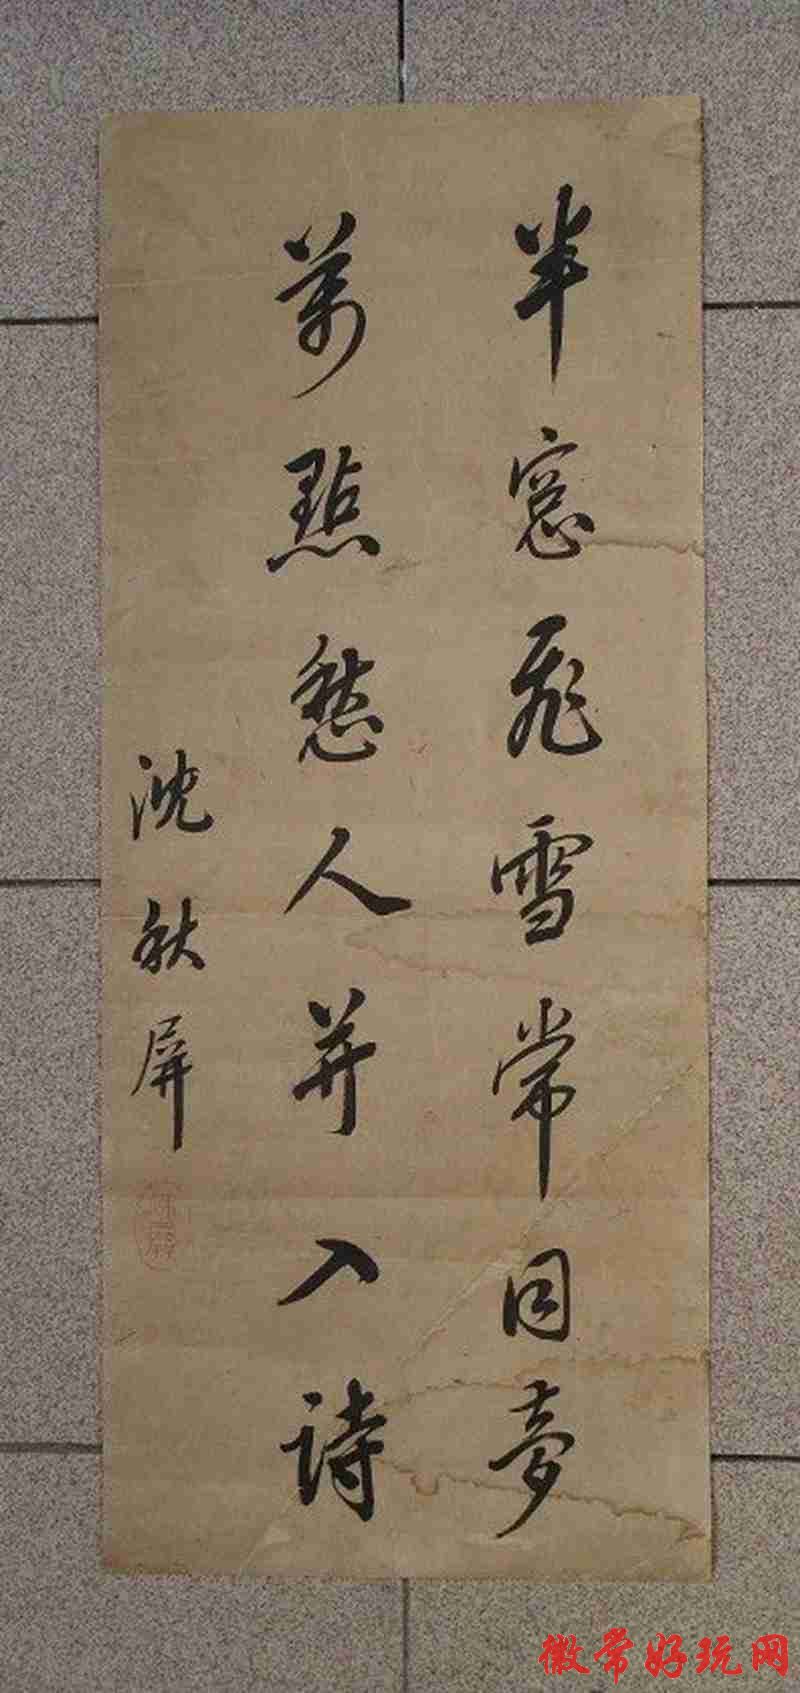 半窓飛雪常同夢
萬點愁人并入詩
沈秋屏
秋屏
徽常好玩网